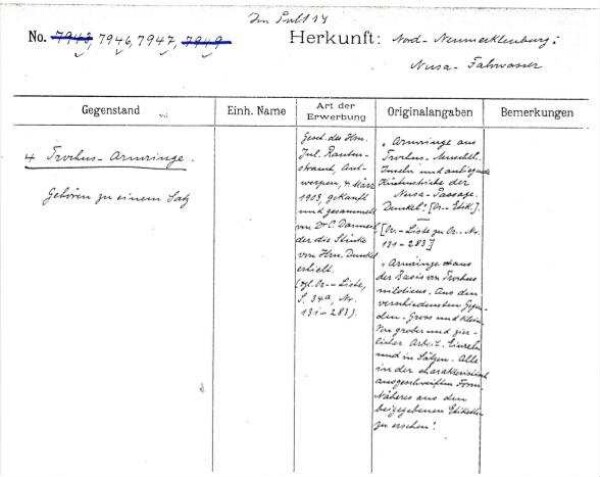 Im Pult 14
No. 7943, 7946, 7947, 7949
Herkunft: Nord-Neumecklenburg:
Nusa-Fahrwasser
Gegenstand
Einh. Name
Art der
Erwerbung
Originalangaben
Bemerkungen
4 Trochus-Armringe.
Gehören zu einem Satz
Gesch. des Hrn.
Jul. Rauten-
strauch, Ant-
werpen, 4 März
1903, gekauft
und gesammelt
von Dr. O. Dannert,
der die Stücke
von Hrn. Dunkel
erhielt.
(vgl. Or.-Liste,
S. 34a, No.
131-283).
„Armringe aus
Trochus-Muschel.
Inseln und anliegende
Küstenstriche der
Nusa-Passage.
Dunkel". [Or.-Etik.].
[Or.-Liste zu Or.-No.
131-283]
„Armringe aus
der Basis von Trochus
niloticus. Aus den
verschiedensten Gegen-
den. Gross und klein.
Von grober und zier-
licher Arbeit. Einzeln
und in Sätzen. Alle
in der charakteristisch
ausgeschweiften Form.
Näheres aus den
beigegebenen Etiketten
zu ersehen".